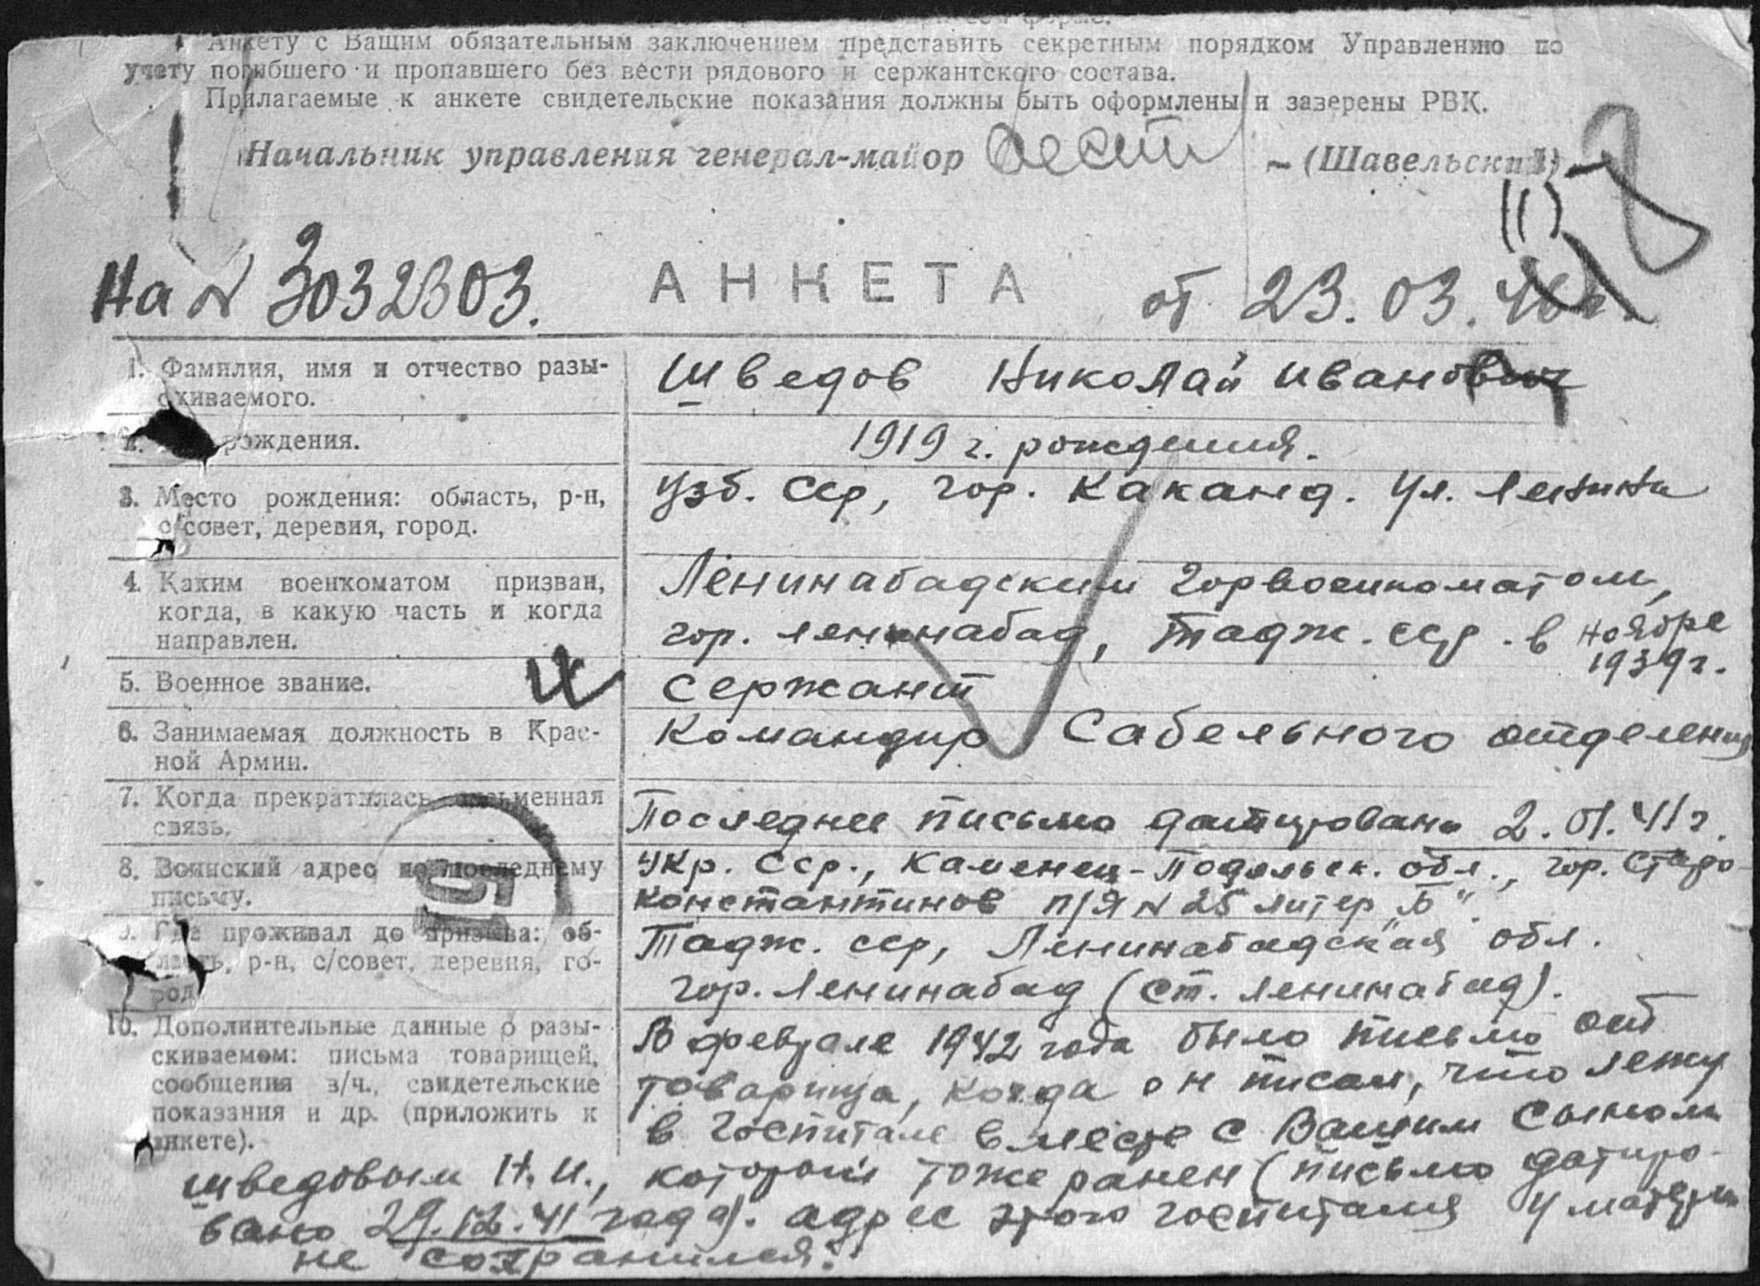 Анкету с Вашим обязательным заключением представить секретным порядком Управлению по
учету погибшего и пропавшего без вести рядового и сержантского состава.
Прилагаемые к анкете свидетельские показания должны быть оформлены и заверены РВК.
Начальник управления генерал-майор (Шавельский)
На № 3032303. АНКЕТА от 23.03.
1. Фамилия, имя и отчество разы-
скиваемого.
Шведов Николай Иванович
рождения.
1919 г. рождения.
3. Место рождения: область, р-н,
с/совет, деревня, город.
Узб. ССР, гор. Каканд. Ул. Ленина
4. Каким военкоматом призван,
когда, в какую часть и когда
направлен.
Ленинабадским Горвоенкоматом,
гор. Ленинабад, Тадж. ССР. в ноябре
1939 г.
5. Военное звание.
Сержант
6. Занимаемая должность в Крас-
ной Армии.
Командир Сабельного отделения
7. Когда прекратилась письменная
связь.
Последнее письмо датировано 2.01.41 г.
8. Воинский адрес по последнему
письму.
Укр. ССР., Каменец-Подольск. обл., гор. Старо-
константинов п/я № 25 литер „Б".
9. Где проживал до призыва: об-
ласть, р-н, с/совет, деревня, го-
род
Тадж. ССР, Ленинабадская обл.
гор. Ленинабад (ст. Ленинабад).
10. Дополнительные данные о разы-
скиваемом: письма товарищей,
сообщения в/ч., свидетельские
показания и др. (приложить к
анкете).
В феврале 1942 года было письмо от
товарища, когда он писал, что лежу
в госпитале вместе с Вашим сыном
Шведовым Н.И., который тоже ранен (письмо датиро-
вано 29.12.41 года). адрес этого госпиталя у матери
не сохранился.